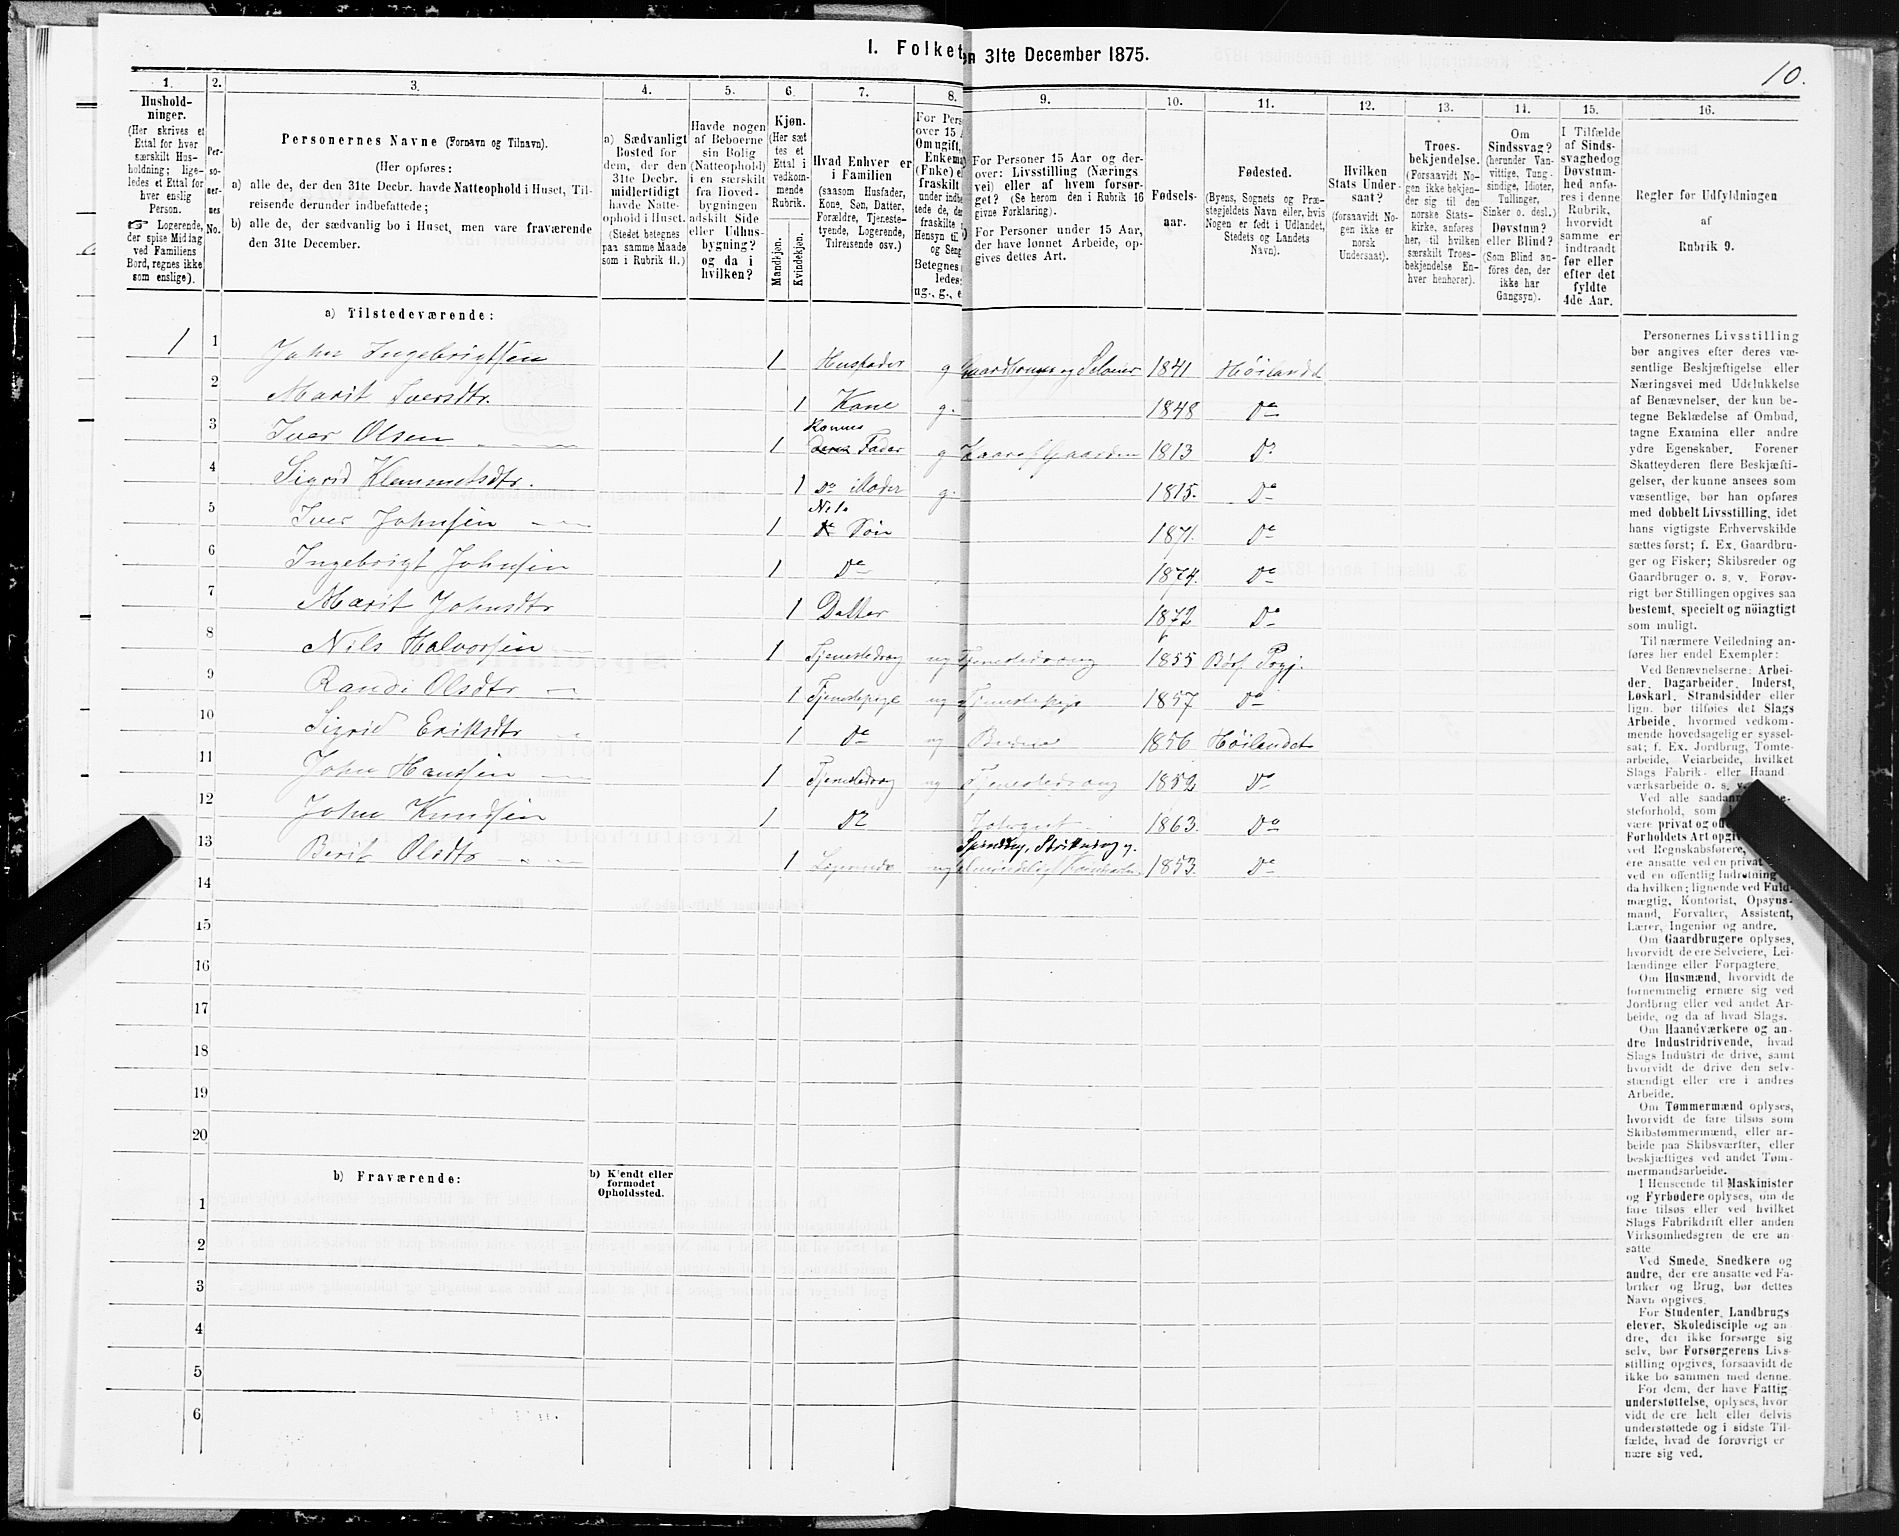 I. Folket
en 31te December 1875.
10.
1.
2.
3.
4.
5.
6.
7.
8.
9.
10.
11.
12.
13.
14.
15.
16.
Hushold-
ninger.
(Her skrives et
Ettal for hver
særskilt Hus-
holdning; lige-
ledes et Ettal for
hver enslig
Person.
☞ Logerende,
der spise Middag
ved Familiens
Bord, regnes ikke
som enslige).
Per-
so-
ner-
nes
No.
Personernes Navne (Fornavn og Tilnavn).
(Her opføres:
a) alle de, der den 31te Decbr. havde Natteophold i Huset, Til-
reisende derunder indbefattede;
b) alle de, der sædvanlig bo i Huset, men vare fraværende
den 31te December.
a) Sædvanligt
Bosted for
dem, der den
31te Decbr.
midlertidigt
havde Natte-
ophold i Huset.
(Stedet betegnes
paa samme Maade
som i Rubrik 11.)
Havde nogen
af Beboerne
sin Bolig
(Natteophold)
i en særskilt
fra Hoved-
bygningen
adskilt Side
eller Udhus-
bygning?
og da i
hvilken?
Kjøn.
(Her sæt
tes et
Ettal i
vedkom-
mende
Rubrik.
Mandkjøn.
Kvindekjøn.
Hvad Enhver er
i Familien
(saasom Husfader,
Kone, Søn, Datter,
Forældre, Tjeneste-
tyende, Logerende,
Tilreisende osv.)
For Pers
over 15 A
Om ugift,
Enkema
(Fnke) e
fraskilt
under indbe
tede de, de
fraskilte i
Hensyn ti
og Seng
Betegnes
ledes:
ug., g., e
For Personer 15 Aar og der-
over: Livsstilling (Nærings
vei) eller af hvem forsør-
get? (Se herom den i Rubrik 16
givne Forklaring).
For Personer under 15 Aar,
der have lønnet Arbeide, op-
gives dettes Art.
Fødsels-
aar.
Fødested.
(Byens, Sognets og Præ-
stegjeldets Navn eller, hvis
Nogen er født i Udlandet,
Stedets og Landets
Navn).
Hvilken
Stats Under-
saat?
(forsaavidt No-
gen ikke er
norsk
Undersaat).
Troes-
bekjendelse.
(Forsaavidt No-
gen ikke bekjen-
der sig til den
norske Stats-
kirke, anføres
her, til hvilken
særskilt Troes-
bekjendelse En-
hver henhører).
Om
Sindssvag?
(herunder Van-
vittige, Tung-
sindige, Idioter,
Tullinger,
Sinker o. desl.)
Døvstum?
eller Blind?
(Som Blind an-
føres den, der
ikke har
Gangsyn).
I Tilfælde
af Sinds-
svaghedog
Døvstum-
hed anfø-
res i denne
Rubrik,
hvorvidt
samme er
indtraadt
før eller
efter det
fyldte
4de Aar.
Regler for Udfyldningen
af
Rubrik 9.
a) Tilstedeværende:
1 1 John Ingebrigtsen 1 Husfader g Gaardbruger og Selveier 1841 Höilandet
2 Marit Iversdtr. 1 Kone g. 1848 Do
3 Iver Olsen 1 Konens Fader g Kaar af Gaarden 1813 Do
4 Sigrid Klemmetsdtr. 1 Do Moder g. 1815. Do
5 Iver Johnsen 1 Søn 1871. Do
6 Ingebrigt Johnsen 1 Do 1874. Do
7 Marit Johnsdtr 1 Datter 1872 Do
8 Nils Halvorsen 1 Tjenestedrag ug Tjenestedreng 1855 Börs Prgj.
9 Randi Olsdtr 1 Tjenestepige ug Tjenestepige 1857 Do
10 Sigrid Eriksdtr 1 Do ug Budeie 1856 Höilandet
11 John Hansen 1 Tjenestedrag ug Tjenestedreng 1852 Do
12 John Knudsen 1 Do 1863. Do
13 Berit Olsdtr 1 Logerende ug Spinding, Strikning 1853. Do
14
15
16
17
18
19
20
b) Fraværende:
b) Kjendt eller
formodet
Opholdssted.
1
2
3
4
5
6
Personernes Livsstilling
bør angives efter deres væ-
sentlige Beskjæftigelse eller
Næringsvei med Udelukkelse
af Benævnelser, der kun be-
tegne Beklædelse af Ombud,
tagne Examina eller andre
ydre Egenskaber. Forener
Skatteyderen flere Beskjæfti-
gelser, der kunne ansees som
væsentlige, bør han opføres
med dobbelt Livsstilling, idet
hans vigtigste Erhvervskilde
sættes først; f. Ex. Gaardbru-
ger og Fisker; Skibsreder og
Gaardbruger o. s. v. Forøv-
rigt bør Stillingen opgives saa
bestemt, specielt og nöiagtigt
som muligt.
Til nærmere Veiledning an-
føres her endel Exempler:
Ved Benævnelserne: Arbei-
der, Dagarbeider, Inderst,
Løskarl, Strandsidder eller
lign. bør tilføies det Slags
Arbeide, hvormed vedkom-
mende hovedsagelig er syssel-
sat; f. Ex. Jordbrug, Tomte-
arbeide, Veiarbeide, hvilket
Slags Fabrik- eller Haand
værksarbeide o. s. v.
Ved alle saadan
steforhold, som
være privat og off
Forholdets Art opgi
ved Regnskabsførere,
ere ansatte ved en privat
ved en offentlig Indretning
da hvilken; lignende ved Fuld-
mægtig, Kontorist, Opsyns-
mand, Forvalter, Assistent,
Lærer, Ingeniør og andre.
Om Gaardbrugere oplyses,
hvorvidt de ere Selveiere, Lei-
lændinge eller Forpagtere.
Om Husmænd, hvorvidt de
fornemmelig ernære sig ved
Jordbrug eller ved andet Ar-
beide, og da af hvad Slags.
Om Haandværkere og an-
dre Industridrivende, hvad
Slags Industri de drive, samt
hvorvidt de drive den selv-
stændigt eller ere i andres
Arbeide.
Om Tømmermænd oplyses,
hvorvidt de fare tilsøs som
Skibstømmermænd, eller ar-
beide paa Skibsværfter, eller
beskjæftiges ved andet Tøm-
mermandsarbeide.
I Henseende til Maskinister
og Fyrbødere oplyses, om de
fare tilsøs eller ved hvilket
Slags Fabrikdrift eller anden
Virksomhedsgren de ere an-
satte.
Ved Smede, Snedkere og
andre, der ere ansatte ved Fa-
briker og Brug, bør dettes
Navn opgives.
For Studenter, Landbrugs
elever, Skoledisciple og an
dre, der ikke forsørge sig
selv, bør Forsørgerens Livs-
stilling opgives, forsaavidt de
ikke bo sammen med denne.
For dem, der have Fattig
understøttelse, oplyses, hvor
vidt de ere helt eller delvis
understøttede og i sidste Til-
fælde, hvad de forøvrigt er
nære sig ved.